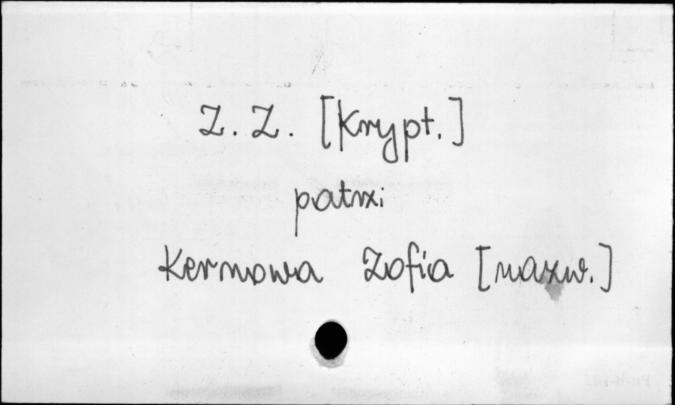 Z. Z. [Krypt.]
patrz
Kernowa Zofia [nazw.]